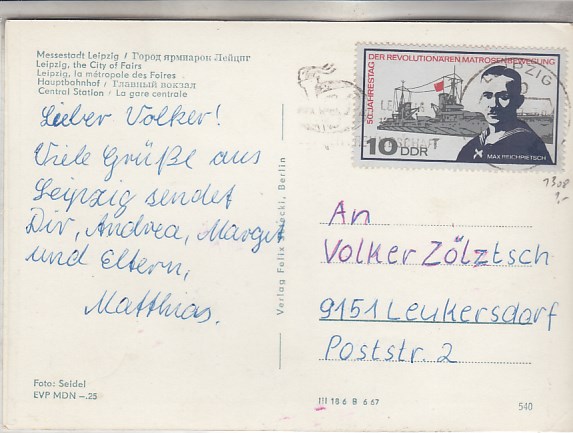 Messestadt Leipzig / Город ярмарок Лейциг
Leipzig, the City of Fairs
Leipzig, la métropole des Foires
Hauptbahnhof / Главный вокзал
Central Station / La gare centrale
Lieber Volker!
Viele Grüße aus
Leipzig sendet
Dir, Andrea, Margit
und Eltern,
Matthias.
Foto: Seidel
EVP MDN –.25
Verlag Felix Setecki, Berlin
50. JAHRESTAG DER REVOLUTIONÄREN MATROSENBEWEGUNG
10 DDR
MAX REICHPIETSCH
LEIPZIG
1308
1,-
An
Volker Zölztsch
9151 Leukersdorf
Poststr. 2
III 18 6 B 6 67
540